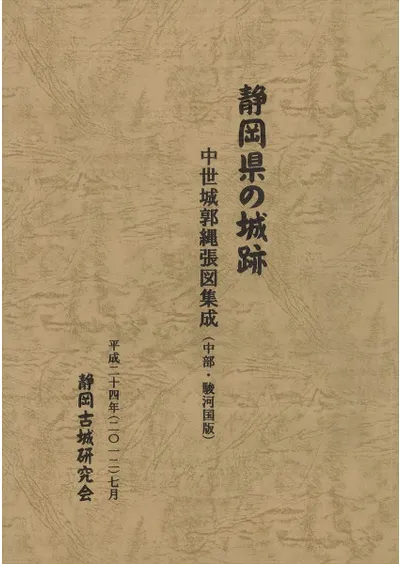 静岡県の城跡
中世城郭縄張図集成（中部・駿河国版）
平成二十四年（二〇一二）七月
静岡古城研究会